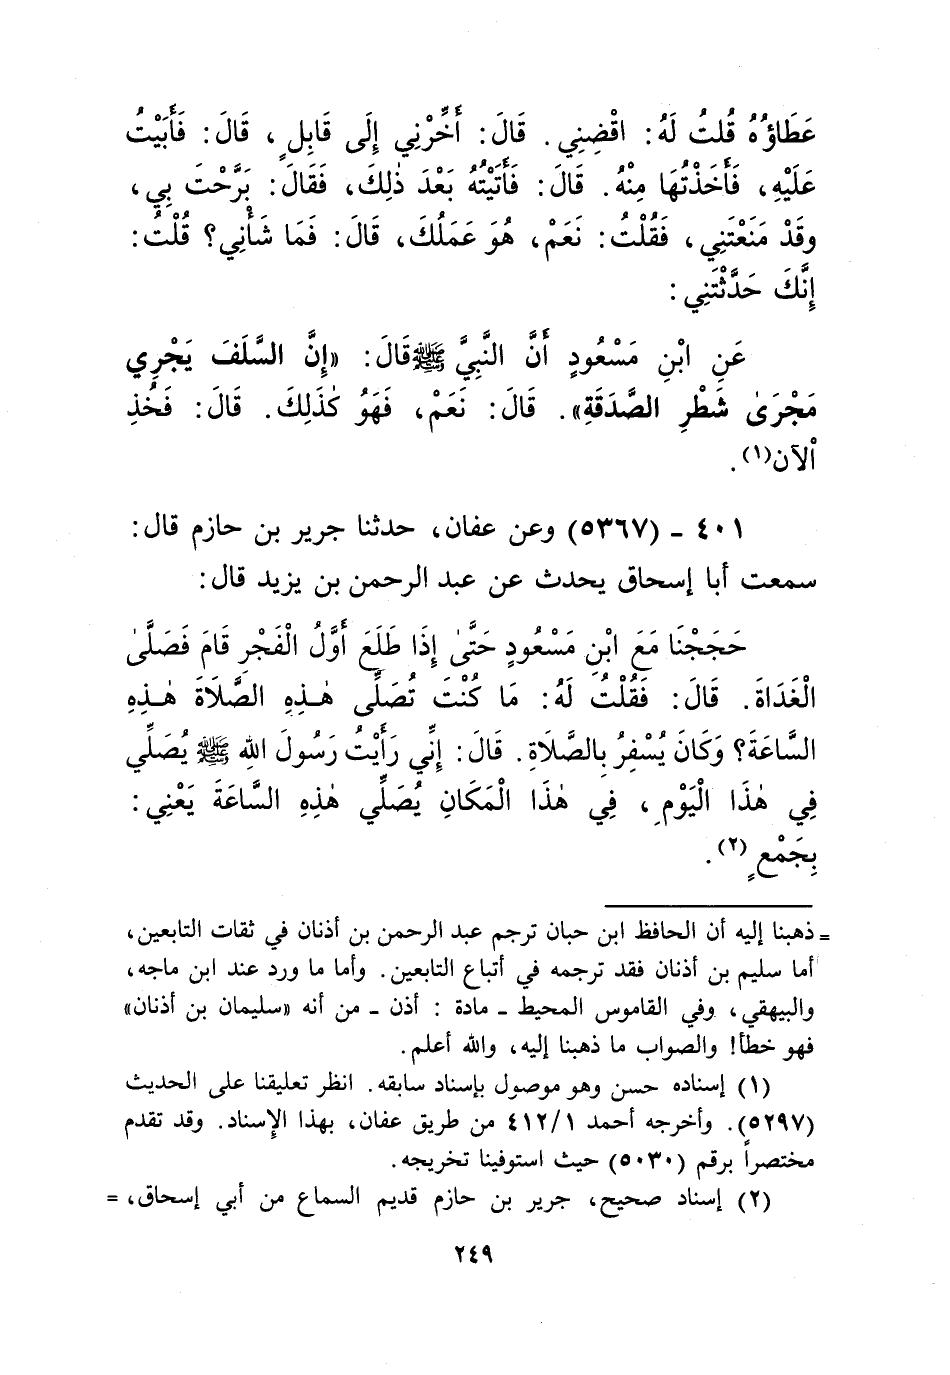 عَطَاؤُهُ قُلتُ لَهُ: اقْضِنِي. قَالَ: أَخِّرْنِي إِلَى قَابِلٍ، قَالَ: فَأَبَيْتُ
عَلَيْهِ، فَأَخَذْتُهَا مِنْهُ. قَالَ: فَأَتَيْتُهُ بَعْدَ ذٰلِكَ، فَقَالَ: بَرَّحْتَ بِي،
وقَدْ مَنَعْتَنِي، فَقُلْتُ: نَعَمْ، هُوَ عَمَلُكَ، قَالَ: فَمَا شَأْنِي؟ قُلْتُ:
إِنَّكَ حَدَّثْتَنِي:
عَنِ ابْنِ مَسْعُودٍ أَنَّ النَّبِيَّ ﷺ قَالَ: «إِنَّ السَّلَفَ يَجْرِي
مَجْرَىٰ شَطْرِ الصَّدَقَةِ». قَالَ: نَعَمْ، فَهَوُ كَذٰلِكَ. قَالَ: فَخُذِ
اْلآن(١).
٤٠١ - (٥٣٦٧) وعن عفان، حدثنا جرير بن حازم قال:
سمعت أبا إسحاق يحدث عن عبد الرحمن بن يزيد قال:
حَجَجْنَا مَعَ ابْنِ مَسْعُودٍ حَتَّىٰ إِذَا طَلَعَ أَوَّلُ الْفَجْرِ قَامَ فَصَلَّىٰ
الْغَدَاةَ. قَالَ: فَقُلْتُ لَهُ: مَا كُنْتَ تُصَلِّى هٰـذِهِ الصَّلَاةَ هٰـذِهِ
السَّاعَةَ؟ وَكَانَ يُسْفِرُ بِالصَّلَاةِ. قَالَ: إِنِّي رَأَيْتُ رَسُولَ اللهِ ﷺ يُصَلِّي
فِي هٰذَا الْيَوْمِ، فِي هٰذَا الْمَكَانِ يُصَلِّي هٰذِهِ السَّاعَةَ يَعْنِي:
بِجَمْعٍ(٢).
= ذهبنا إليه أن الحافظ ابن حبان ترجم عبد الرحمن بن أذنان في ثقات التابعين،
أما سليم بن أذنان فقد ترجمه في أتباع التابعين. وأما ما ورد عند ابن ماجه،
والبيهقي، وفي القاموس المحيط - مادة : أذن - من أنه «سليمان بن أذنان»
فهو خطأ! والصواب ما ذهبنا إليه، والله أعلم.
(١) إسناده حسن وهو موصول بإسناد سابقه. انظر تعليقنا على الحديث
(٥٢٩٧). وأخرجه أحمد ٤١٢/١ من طريق عفان، بهذا الإسناد. وقد تقدم
مختصراً برقم (٥٠٣٠) حيث استوفينا تخريجه.
(٢) إسناد صحيح، جرير بن حازم قديم السماع من أبي إسحاق، =
٢٤٩